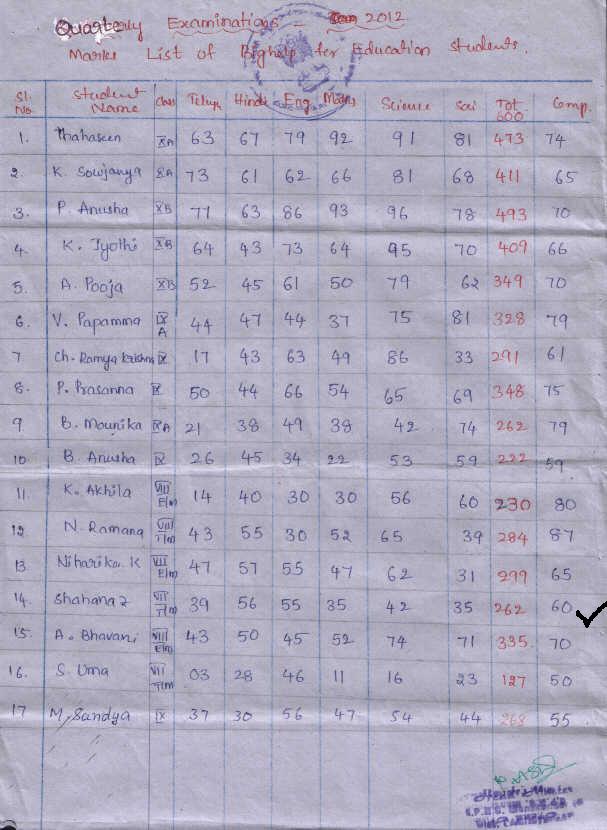 Quarterly Examinations - 2012
Marks List of Bighelp for Education Students.
Sl. No. Student Name Class Telugu Hindi Eng Maths Science Soci Tot 600 Comp.
1. Thahaseen XA 63 67 79 92 91 81 473 74
2. K. Sowjanya XA 73 61 62 66 81 68 411 65
3. P. Anusha XB 71 63 86 93 96 78 493 70
4. K. Jyothi XB 64 43 73 64 95 70 409 66
5. A. Pooja XB 52 45 61 50 79 62 349 70
6. V. Papamma IX A 44 47 44 37 75 81 328 79
7 Ch. Ramya Krishna IX 17 43 63 49 86 33 291 61
8. P. Prasanna IX 50 44 66 54 65 69 348 75
9 B. Mounika IXA 21 38 49 38 42 74 262 79
10 B. Anusha IX 26 45 34 22 53 59 222 59
11. K. Akhila VIII E/m 14 40 30 30 56 60 230 80
12 N. Ramana VIII T/m 43 55 30 52 65 39 284 87
13 Niharika. K VII E/m 47 57 55 47 62 31 299 65
14. Shahanaz VII T/m 39 56 55 35 42 35 262 60
15. A. Bhavani VIII E/m 43 50 45 52 74 71 335. 70
16. S. Uma VII T/m 03 28 46 11 16 23 127 50
17 M. Sandya IX 37 30 56 47 54 44 268 55